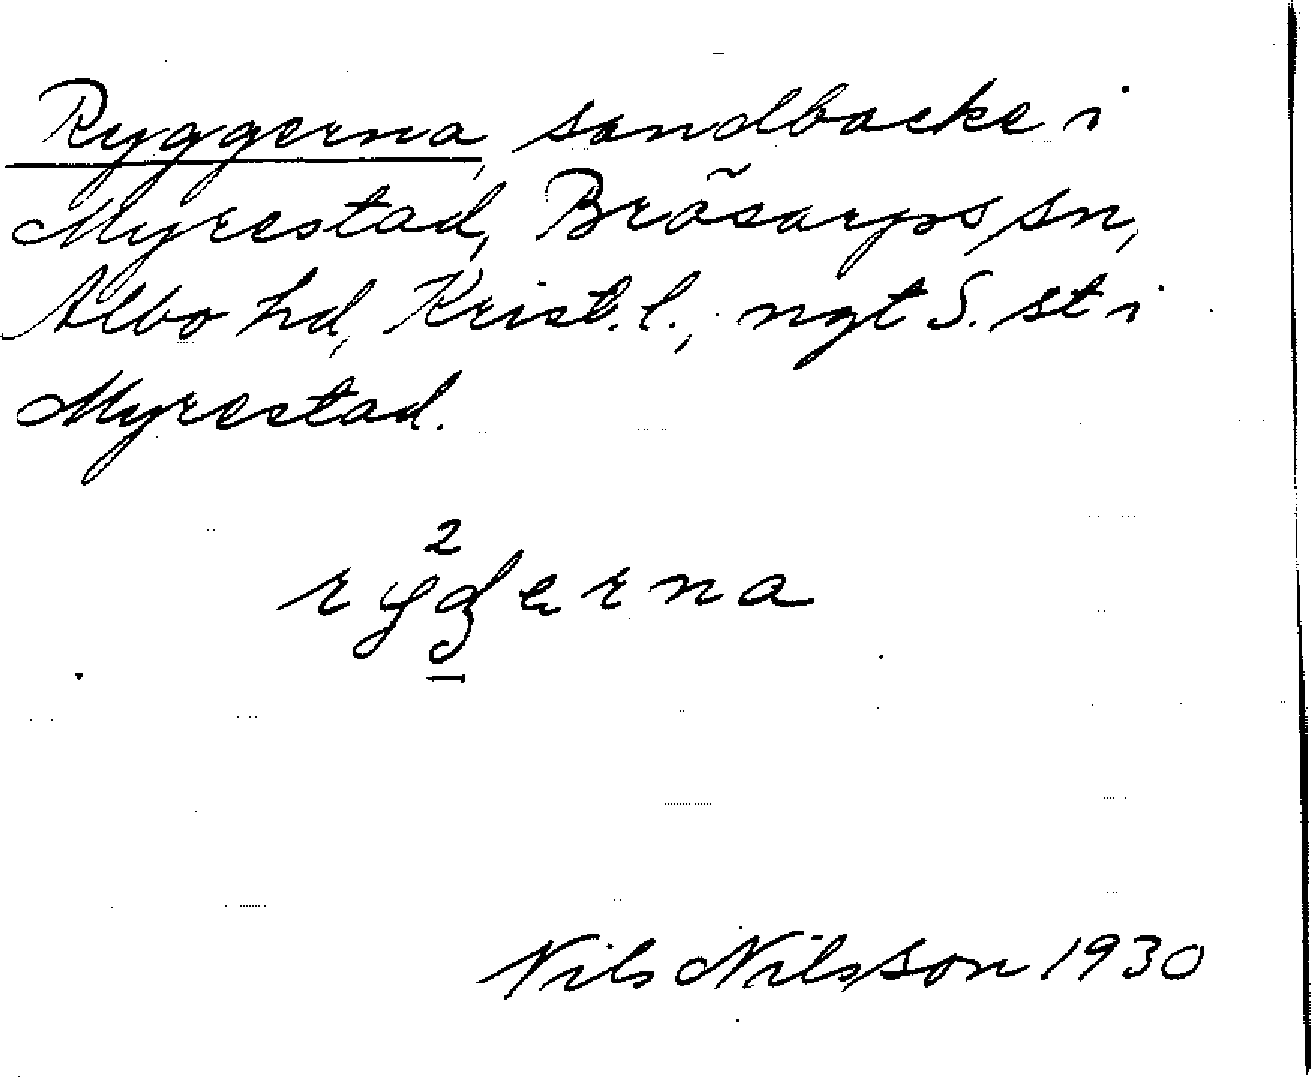 Ryggerna, sandbacke i
Myrestad, Brösarps sn,
Albo hd, Krist. l., ngt S. st i
Myrestad.
2
Nils Nilsson 1930